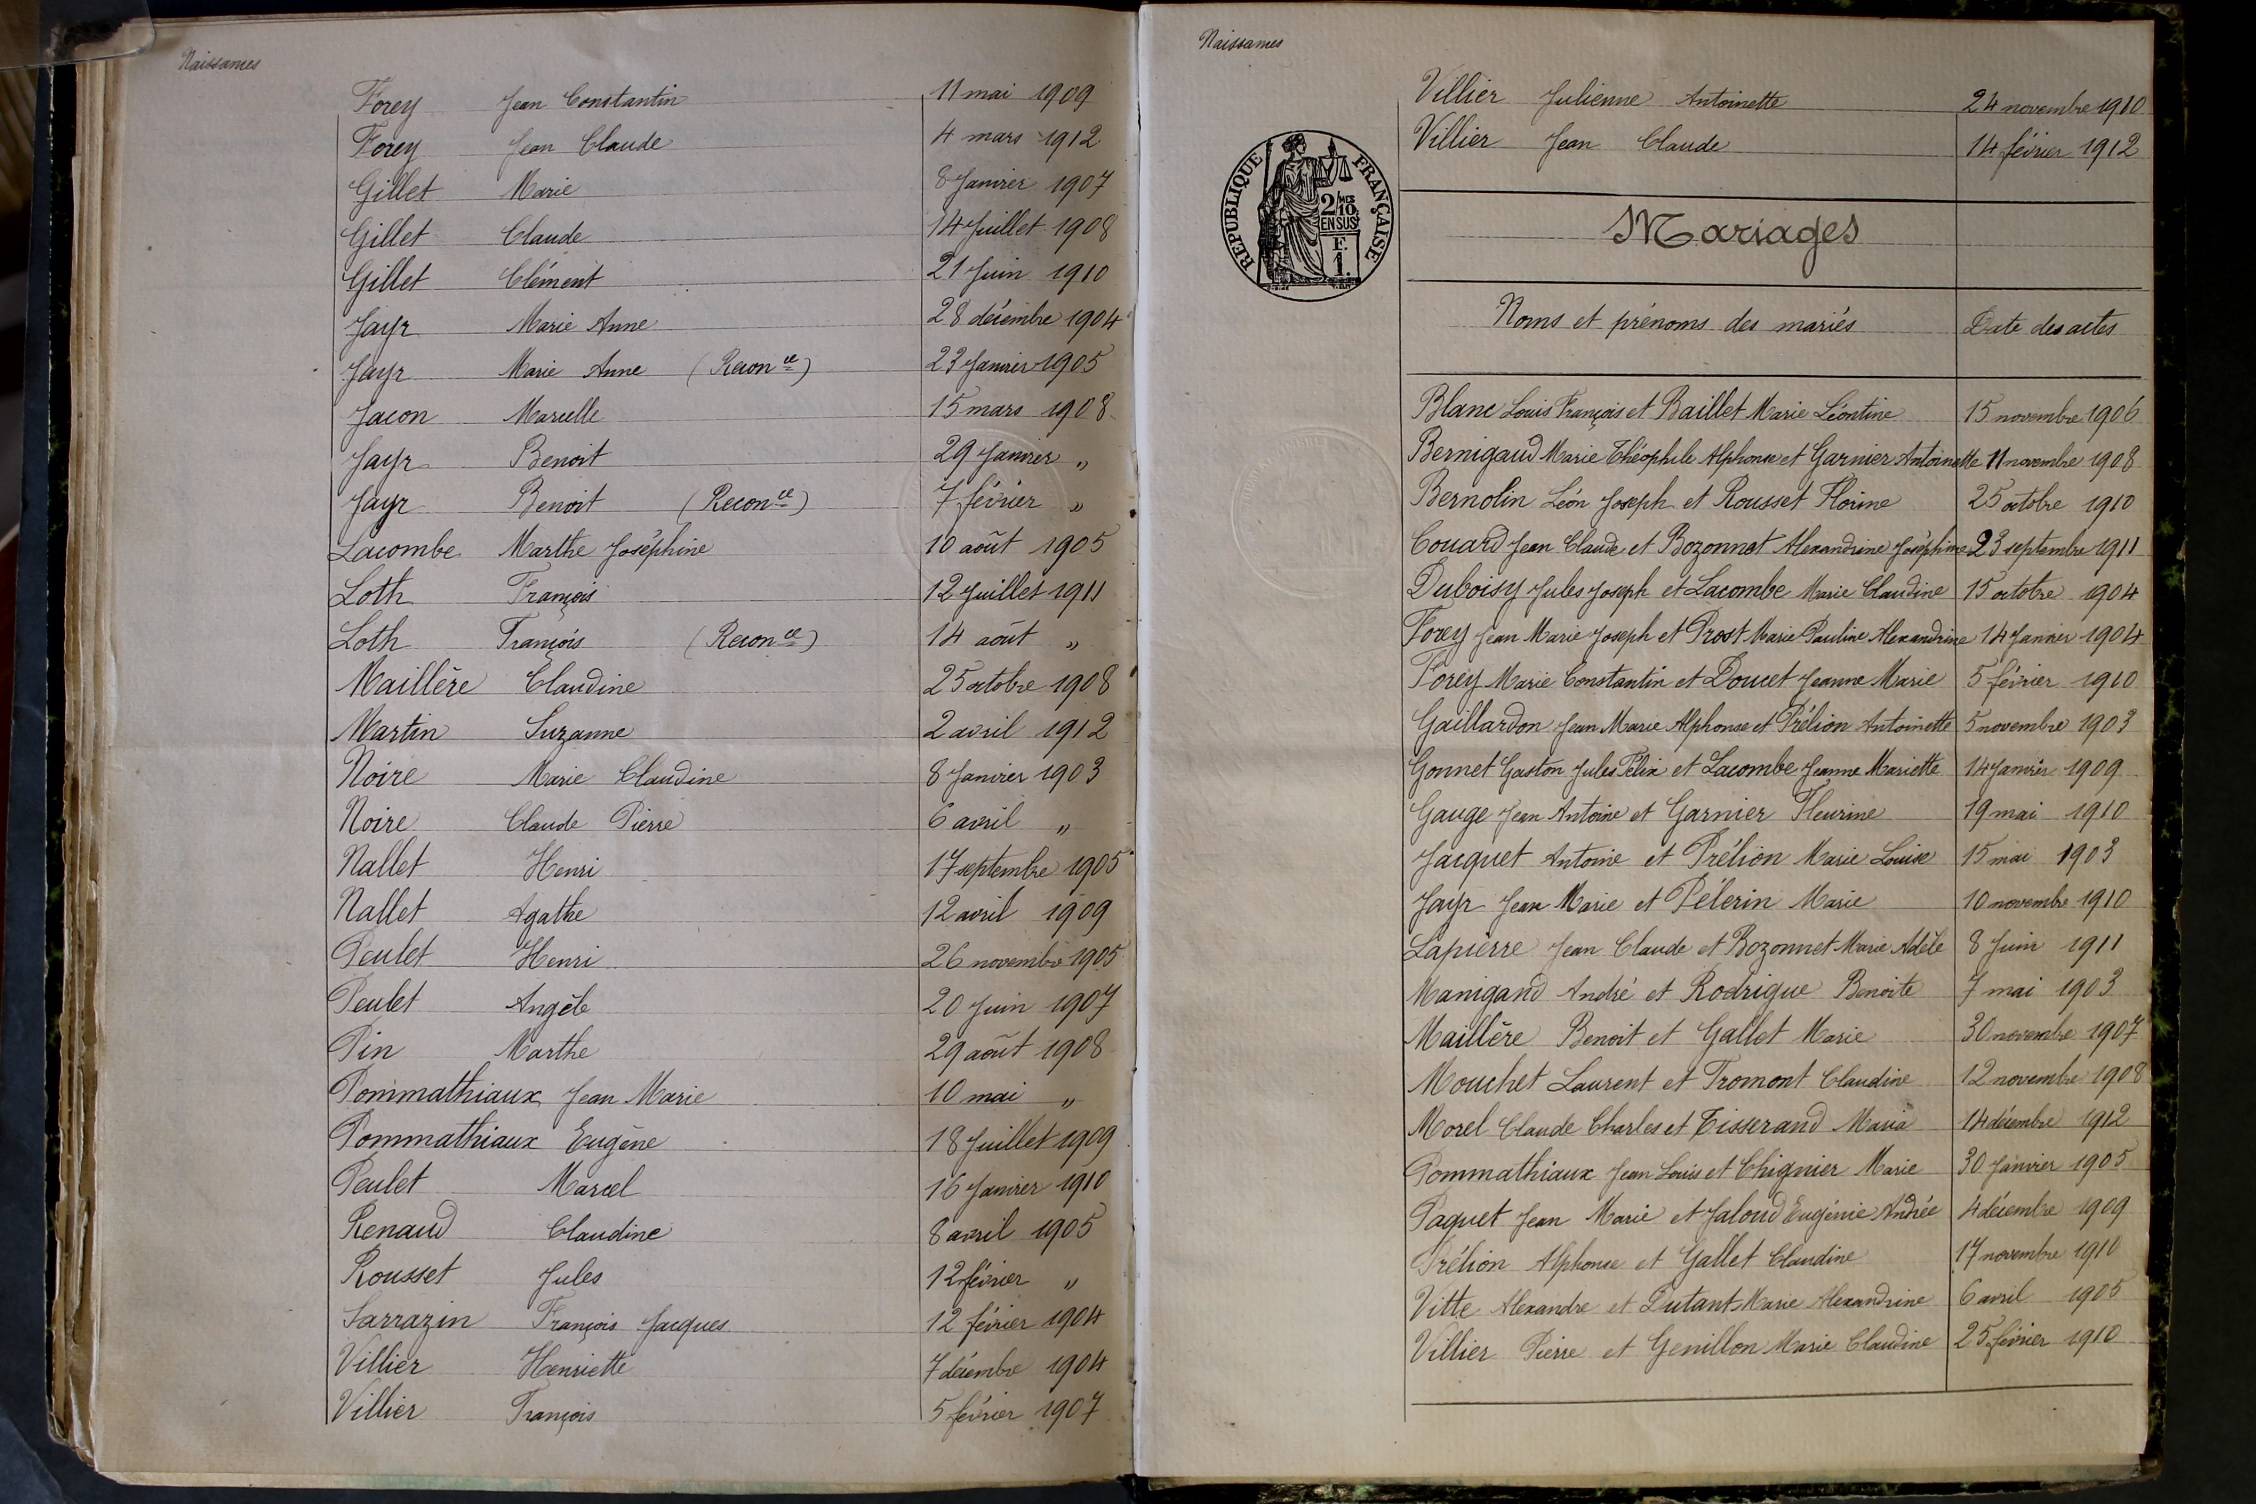 Naissances
Forey Jean Constantin 11 mai 1909
Forey Jean Claude 4 mars 1912
Gillet Marie 8 Janvier 1907
Gillet Claude 14 Juillet 1908
Gillet Clément 21 Juin 1910
Jayr Marie Anne 28 décembre 1904
Jayr Marie Anne (Reconce) 23 Janvier 1905
Jacon Marcelle 15 mars 1908
Jayr Benoit 29 Janvier "
Jayr Benoit (Reconce) 7 février "
Lacombe Marthe Joséphine 10 août 1905
Loth François 12 Juillet 1911
Loth François (Reconce) 14 août "
Maillère Claudine 25 octobre 1908
Martin Suzanne 2 avril 1912
Noire Marie Claudine 8 Janvier 1903
Noire Claude Pierre 6 avril "
Nallet Henri 17 septembre 1905
Nallet Agathe 12 avril 1909
Peulet Henri 26 novembre 1905
Peulet Angèle 20 Juin 1907
Pin Marthe 29 août 1908
Pommathiaux Jean Marie 10 mai "
Pommathiaux Eugène 18 Juillet 1909
Peulet Marcel 16 Janvier 1910
Renaud Claudine 8 avril 1905
Rousset Jules 12 février "
Sarrazin François Jacques 12 février 1904
Villier Henriette 7 décembre 1904
Villier François 5 février 1907
Naissances
Villier Julienne Antoinette 24 novembre 1910
Villier Jean Claude 14 février 1912
RÉPUBLIQUE FRANÇAISE
2/10mes
EN SUS
F.
1.
Mariages
Noms et prénoms des mariés Date des actes
Blanc Louis François et Baillet Marie Léontine 15 novembre 1906
Bernigaud Marie Théophile Alphonse et Garnier Antoinette 11 novembre 1908
Bernolin Léon Joseph et Rousset Florine 25 octobre 1910
Couard Jean Claude et Bozonnet Alexandrine Joséphine 23 septembre 1911
Duboisy Jules Joseph et Lacombe Marie Claudine 15 octobre 1904
Forey Jean Marie Joseph et Prost Marie Pauline Alexandrine 14 Janvier 1904
Forey Marie Constantin et Doucet Jeanne Marie 5 février 1910
Gaillardon Jean Marie Alphonse et Prélion Antoinette 5 novembre 1903
Gonnet Gaston Jules Félix et Lacombe Jeanne Mariette 14 Janvier 1909
Gauge Jean Antoine et Garnier Fleurine 19 mai 1910
Jacquet Antoine et Prélion Marie Louise 15 mai 1903
Jayr Jean Marie et Pélerin Marie 10 novembre 1910
Lapierre Jean Claude et Bozonnet Marie Adèle 8 Juin 1911
Manigand André et Rodrigue Benoite 7 mai 1903
Maillère Benoit et Gallet Marie 30 novembre 1907
Mouchet Laurent et Tromont Claudine 12 novembre 1908
Morel Claude Charles et Tisserand Maria 14 décembre 1912
Pommathiaux Jean Louis et Chignier Marie 30 Janvier 1905
Paquet Jean Marie et Jaloud Eugénie Andrée 4 décembre 1909
Prélion Alphonse et Gallet Claudine 17 novembre 1910
Vitte Alexandre et Dutant Marie Alexandrine 6 avril 1905
Villier Pierre et Genillon Marie Claudine 25 février 1910